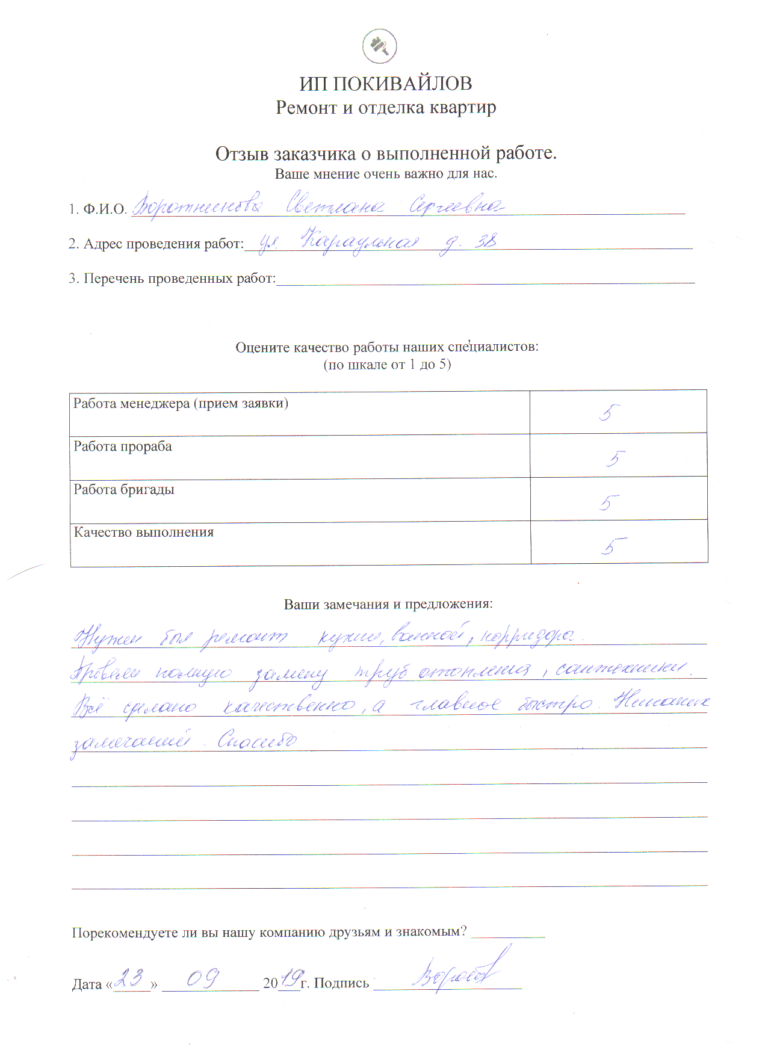 ИП ПОКИВАЙЛОВ
Ремонт и отделка квартир
Отзыв заказчика о выполненной работе.
Ваше мнение очень важно для нас.
1. Ф.И.О. Воротникова Светлана Сергеевна
2. Адрес проведения работ: ул Караульная д. 38
3. Перечень проведенных работ:
Оцените качество работы наших специалистов:
(по шкале от 1 до 5)
Работа менеджера (прием заявки) 5
Работа прораба 5
Работа бригады 5
Качество выполнения 5
Ваши замечания и предложения:
Нужен был ремонт кухни, ванной, корридора.
полную замену труб отопления, сантехники.
Всё сделано качественно, а главное быстро. Никаких
замечаний. Спасибо
Порекомендуете ли вы нашу компанию друзьям и знакомым?
Дата «23» 09 2019г. Подпись